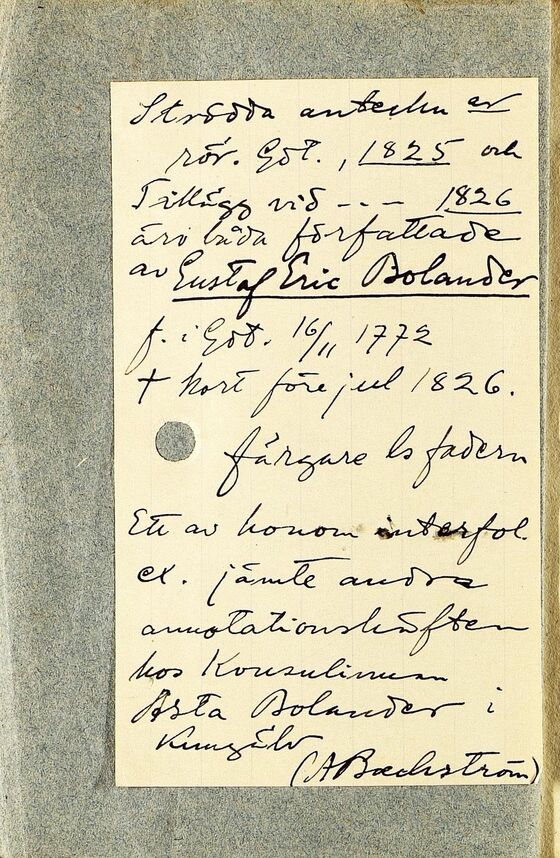 Strödda anteckn ar
rör. Göt., 1825 och
Tillägg vid --- 1826
äro båda författade
av Gustaf Eric Bolander
f. i Göt. 16/11 1772
† kort före jul 1826.
färgare ls fadern
Ett av honom interfol.
ex. jämte andra
annotationshäften
hos Konsulinnan
Asta Bolander i
Kungälv
(A Backström)